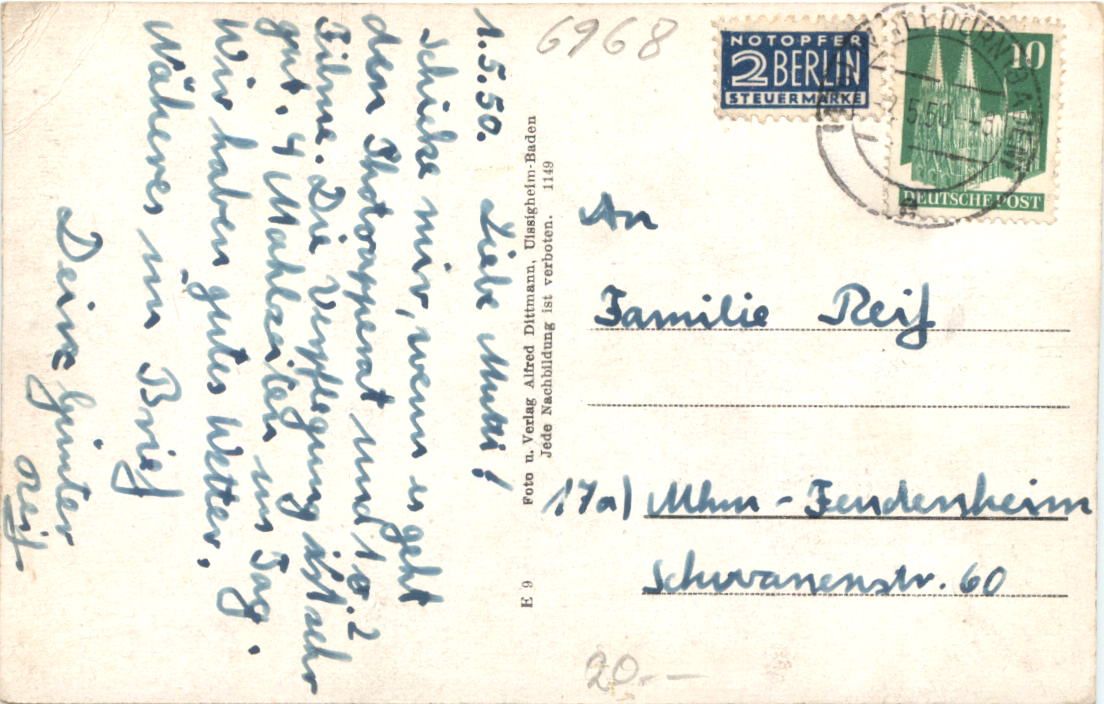 1.5.50. Liebe Mutti!
Schicke mir, wenn es geht
den Photoapperat und 1 o. 2
Filme. Die Verpflegung ist sehr
gut. 4 Mahlzeiten im Tag.
Wir haben gutes Wetter.
Näheres im Brief
Dein Günter
Reif
E 9 Foto u. Verlag Alfred Dittmann, Uissigheim-Baden
Jede Nachbildung ist verboten. 1149
6968
NOTOPFER
2 BERLIN
STEUERMARKE
10
DEUTSCHE POST
5.50
An
Familie Reif
17a) Mhm - Feudenheim
Schwanenstr. 60
20.--